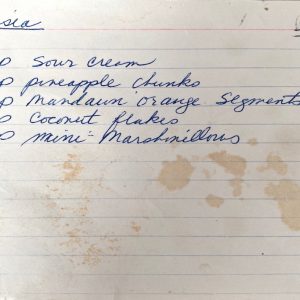 sour cream
pineapple chunks
mandarin orange segments
coconut flakes
mini-marshmillows